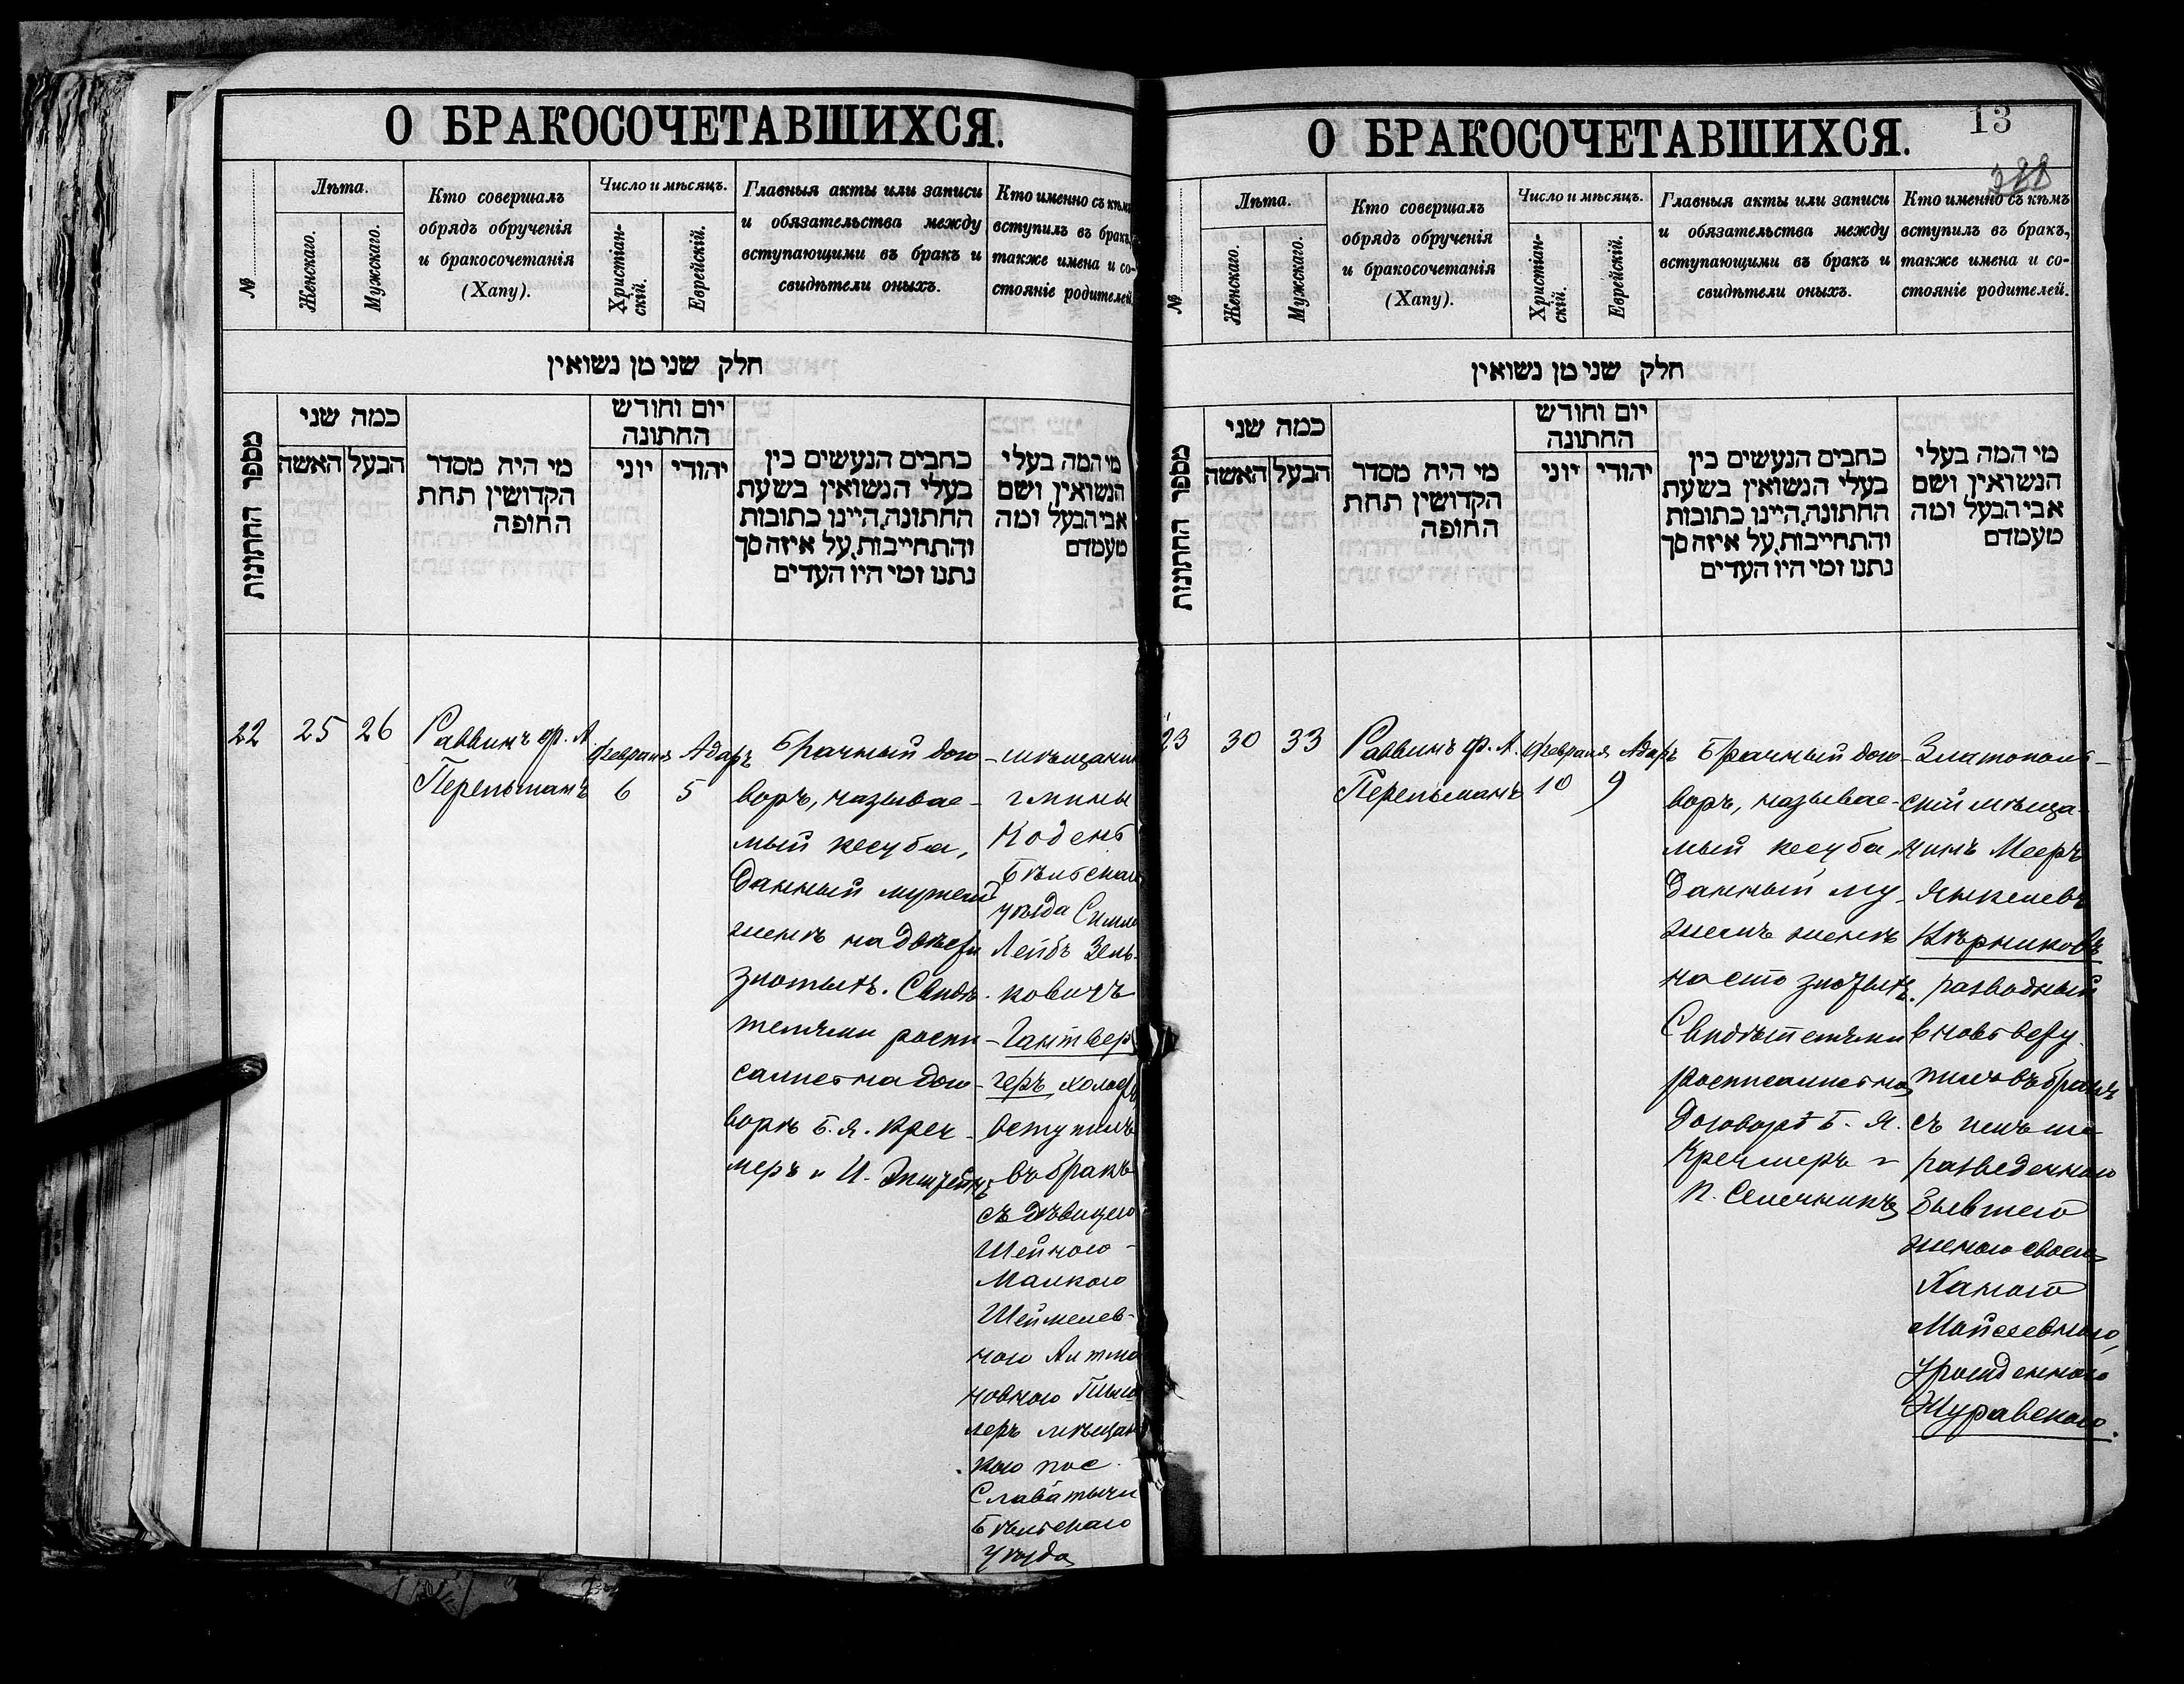 О БРАКОСОЧЕТАВШИХСЯ.
№
Лѣта.
Женскаго.
Мужскаго.
Кто совершалъ
обрядъ обрученія
и бракосочетанія
(Хапу).
Число и мѣсяцъ.
Христіан-
скій.
Еврейскій.
Главныя акты или записи
и обязательства между
вступающими въ бракъ и
свидѣтели оныхъ.
Кто именно съ кѣмъ
вступилъ въ бракъ,
также имена и со-
стояніе родителей.
חלק שני מן נשואין
מספר החתונות
כמה שני
הבעל
האשה
מי היה מסדר
הקדושין תחת
החופה
יום וחודש
החתונה
יהודי
יוני
כתבים הנעשים בין
בעלי הנשואין בשעת
החתונה, היינו כתובות
והתחייבות, על איזה סך
נתנו ומי היו העדים
מי המה בעלי
הנשואין, ושם
אבי הבעל ומה
מעמדם
22
25
26
Раввинъ Ф. А
Перельманъ
Февраля
6
Адаръ
5
Брачный дого-
воръ, называе-
мый кесуба,
данный мужемъ
женѣ на двѣсти
злотыхъ. Свидѣ-
телями роспи-
сались на дого-
ворѣ Б. Я. Креч-
меръ и И. Эпштейнъ
мѣщанинъ
гмины
Кодень
Бѣльскаго
уѣзда
Лейбъ Зель-
ковичъ
Гантвер-
геръ, холост
вступилъ
въ бракъ
съ дѣвицею
Шейною-
Малкою
нерѣ мѣщан
кою пос.
Славатычи
Бѣльскаго
уѣзда
О БРАКОСОЧЕТАВШИХСЯ.
13
№
Лѣта.
Женскаго.
Мужскаго.
Кто совершалъ
обрядъ обрученія
и бракосочетанія
(Хапу).
Число и мѣсяцъ.
Христіан-
скій.
Еврейскій.
Главныя акты или записи
и обязательства между
вступающими въ бракъ и
свидѣтели оныхъ.
Кто именно съ кѣмъ
вступилъ въ бракъ,
также имена и со-
стояніе родителей.
חלק שני מן נשואין
מספר החתונות
כמה שני
הבעל
האשה
מי היה מסדר
הקדושין תחת
החופה
יום וחודש
החתונה
יהודי
יוני
כתבים הנעשים בין
בעלי הנשואין בשעת
החתונה, היינו כתובות
והתחייבות, על איזה סך
נתנו ומי היו העדים
מי המה בעלי
הנשואין, ושם
אבי הבעל ומה
מעמדם
23
30
33
Раввинъ Ф. А.
Перельманъ
Февраля
10
Адаръ
9
Брачный дого-
воръ, называе-
мый кесуба,
данный му-
жемъ женѣ
на сто злотыхъ.
Свидѣтелями
росписались на
договорѣ Б. Я.
Кречмеръ и
П. Селечникъ
Златополь-
скій мѣща-
нинъ Мееръ
Янкелевъ
Кѣрниковъ
разводный
вновь всту-
пилъ въ бракъ
съ
разведенною
бывшею
женою своею
Ханою
Мойсеевною,
урожденною
Журавскою.